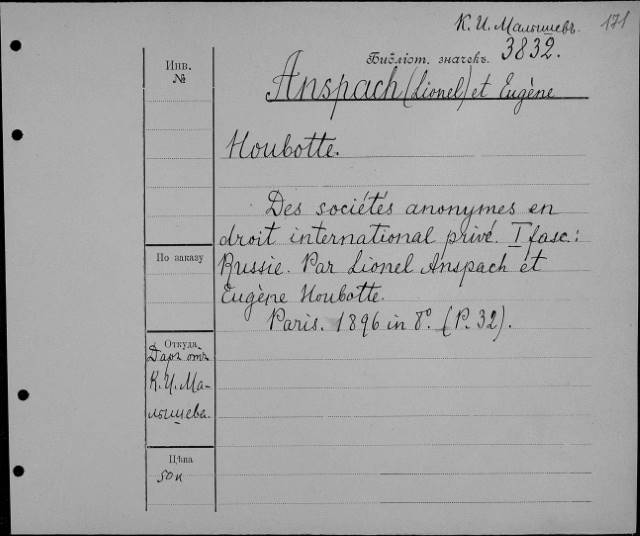 К. И. Малышевъ. 171
Библіот. значекъ. 3832.
Инв.
№
Anspach (Lionel) et Eugène
Houbotte.
Des sociétés anonymes en
droit international privé. I fasc.:
Russie. Par Lionel Anspach et
Eugène Houbotte.
Paris. 1896 in 8°. (P. 32).
По заказу
Откуда
Даръ отъ
К. И. Ма-
лышева.
Цѣна
50 к